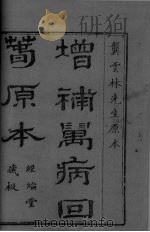 龔雲林先生原本
增補萬病回
萅原本
經綸堂
藏板